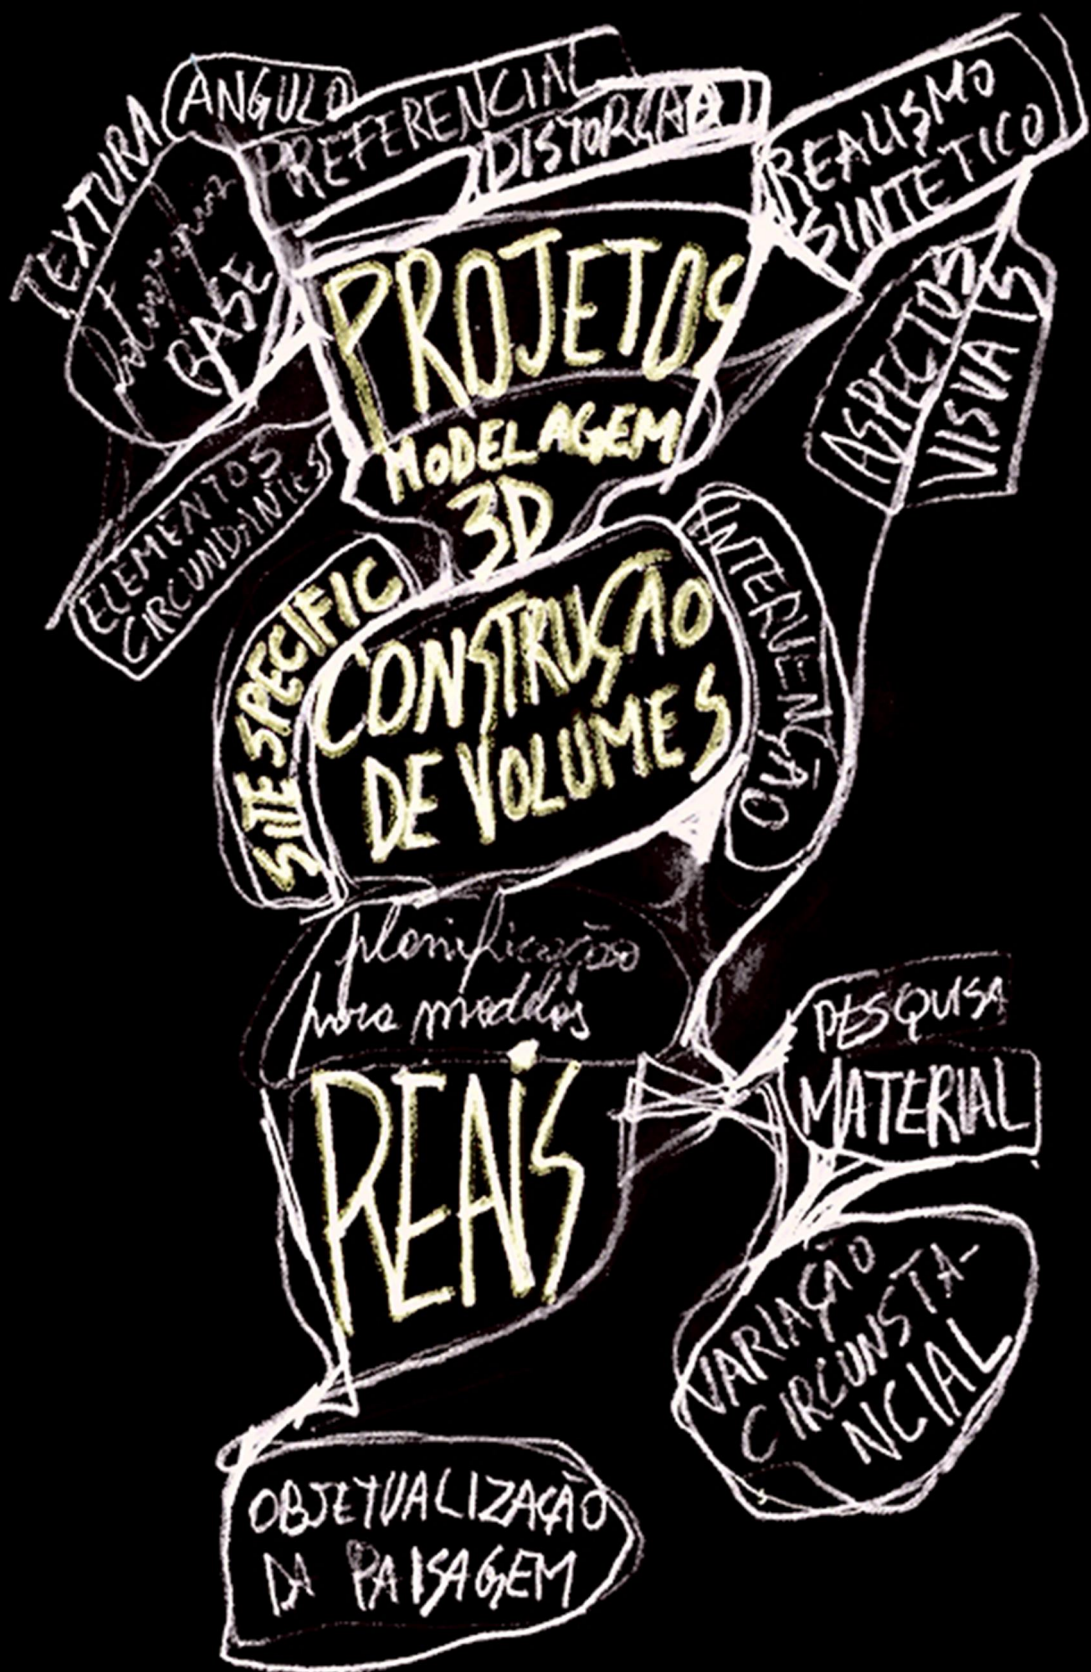 ANGULO
PREFERENCIAL
DISTORÇÃO
REALISMO
SINTETICO
TEXTURA
BASE
PROJETOS
MODELAGEM
3D
ASPECTOS
VISUAIS
ELEMENTOS
CIRCUNDANTES
SITE SPECIFIC
CONSTRUÇÃO
DE VOLUMES
INTERVENSÃO
planificação
para modelos
REAIS
PESQUISA
MATERIAL
VARIAÇÃO
CIRCUNSTA-
NCIAL
OBJETUALIZAÇÃO
DA PAISAGEM